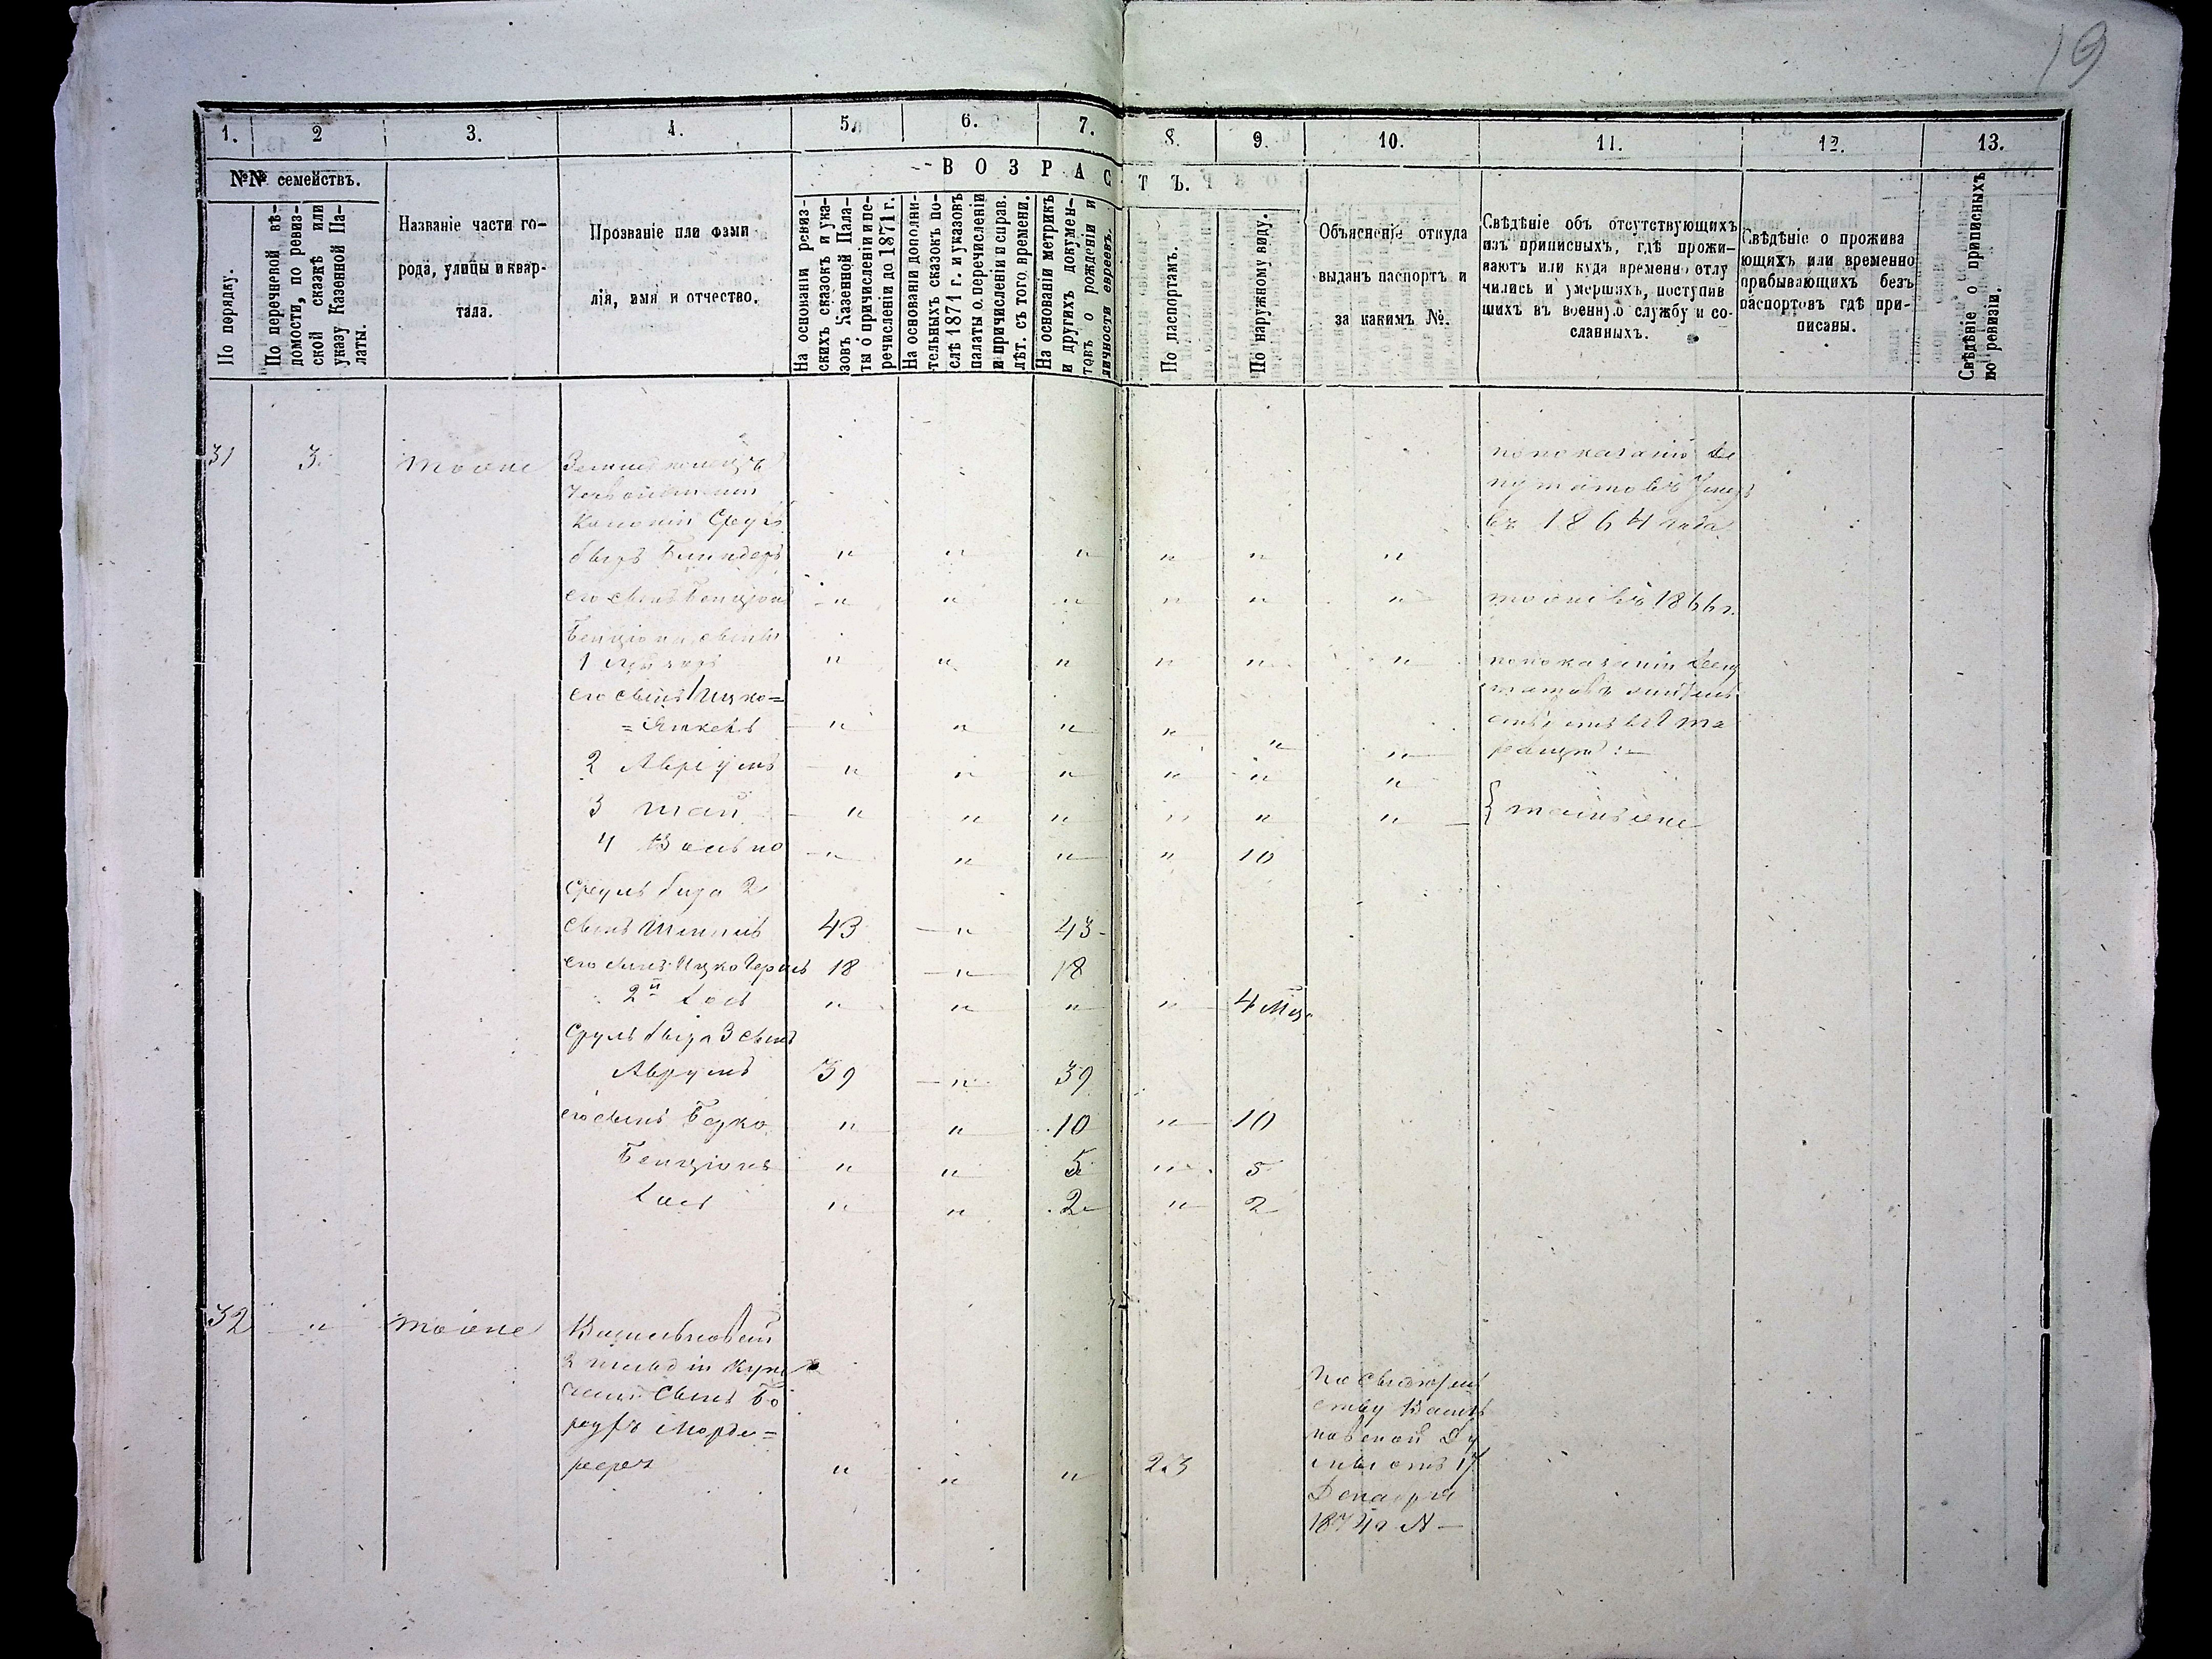 19
1. 2 3. 4. 5. 6. 7. 8. 9. 10. 11. 12. 13.
№№ семействъ.
В О З Р А С Т Ъ.
По порядку.
По перечневой вѣ-
домости, по ревиз-
ской сказкѣ или
указу Казенной Па-
латы.
Названіе части го-
рода, улицы и квар-
тала.
Прозваніе или фами
лія, имя и отчество.
На основаніи ревиз-
скихъ сказокъ и ука-
зовъ Казенной Пала-
ты о причисленіи и пе-
речисленіи до 1871 г.
На основаніи дополни-
тельныхъ сказокъ по-
слѣ 1871 г. и указовъ
палаты о перечисленіи
и причисленіи справ.
лѣт. съ того времени.
На основаніи метрикъ
и другихъ докумен-
товъ о рожденіи и
личности евреевъ.
По паспортамъ.
По наружному виду.
Объясненіе откуда
выданъ паспортъ и
за какимъ №.
Свѣдѣніе объ отсутствующихъ
изъ приписныхъ, гдѣ прожи-
ваютъ или куда временно отлу
чились и умершихъ, поступив
шихъ въ военную службу и со-
сланныхъ.
Свѣдѣніе о прожива
ющихъ или временно
прибывающихъ безъ
паспортовъ гдѣ при-
писаны.
Свѣдѣніе о приписныхъ
по ревизіи.
31 3. тоже
Колоніи Сруль
по показанію де
путатовъ умеръ
въ 1864 года
" " " " " "
его сынъ Бенціонъ " " " " " " тоже въ 1866 г.
Бенціона сынъ
1 " " " " " " по показанію депу
его сынъ Ицко=
=Янкель " " " " " "
2 Аврумъ " " " " " "
3 Шая " " " " " " } тамъ же
4 Волько " " " " 10
Сруль 2
сынъ 43 " 43
его сынъ Ицко Гершъ 18 " 18
2й Іосъ " " " " 4 Мѣс.
Сруль 3 сынъ
Аврумъ 39 " 39
его сынъ Берко " " 10 " 10
Бенціонъ " " 5 " 5
" " 2 " 2
32 " тоже Васильковскій
2 гильдіи
сынъ Бо
рухъ Морде=
" " " 23
По свидѣтель
ству Василь
ковской Ду
мы отъ 17
Декабря
1874 г. №—